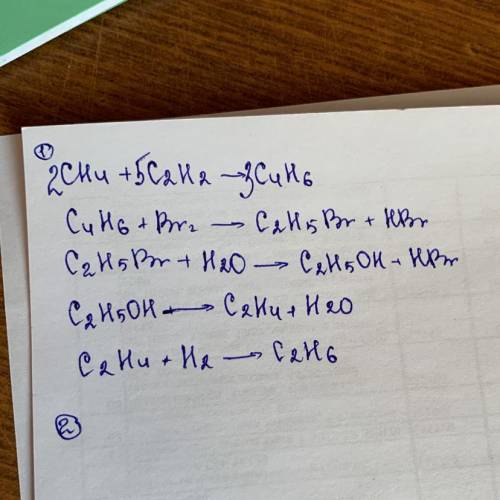 1
2CH4 + 5C2H2 → 3C4H6
C4H6 + Br2 → C2H5Br + HBr
C2H5Br + H2O → C2H5OH + HBr
C2H5OH → C2H4 + H2O
C2H4 + H2 → C2H6
2